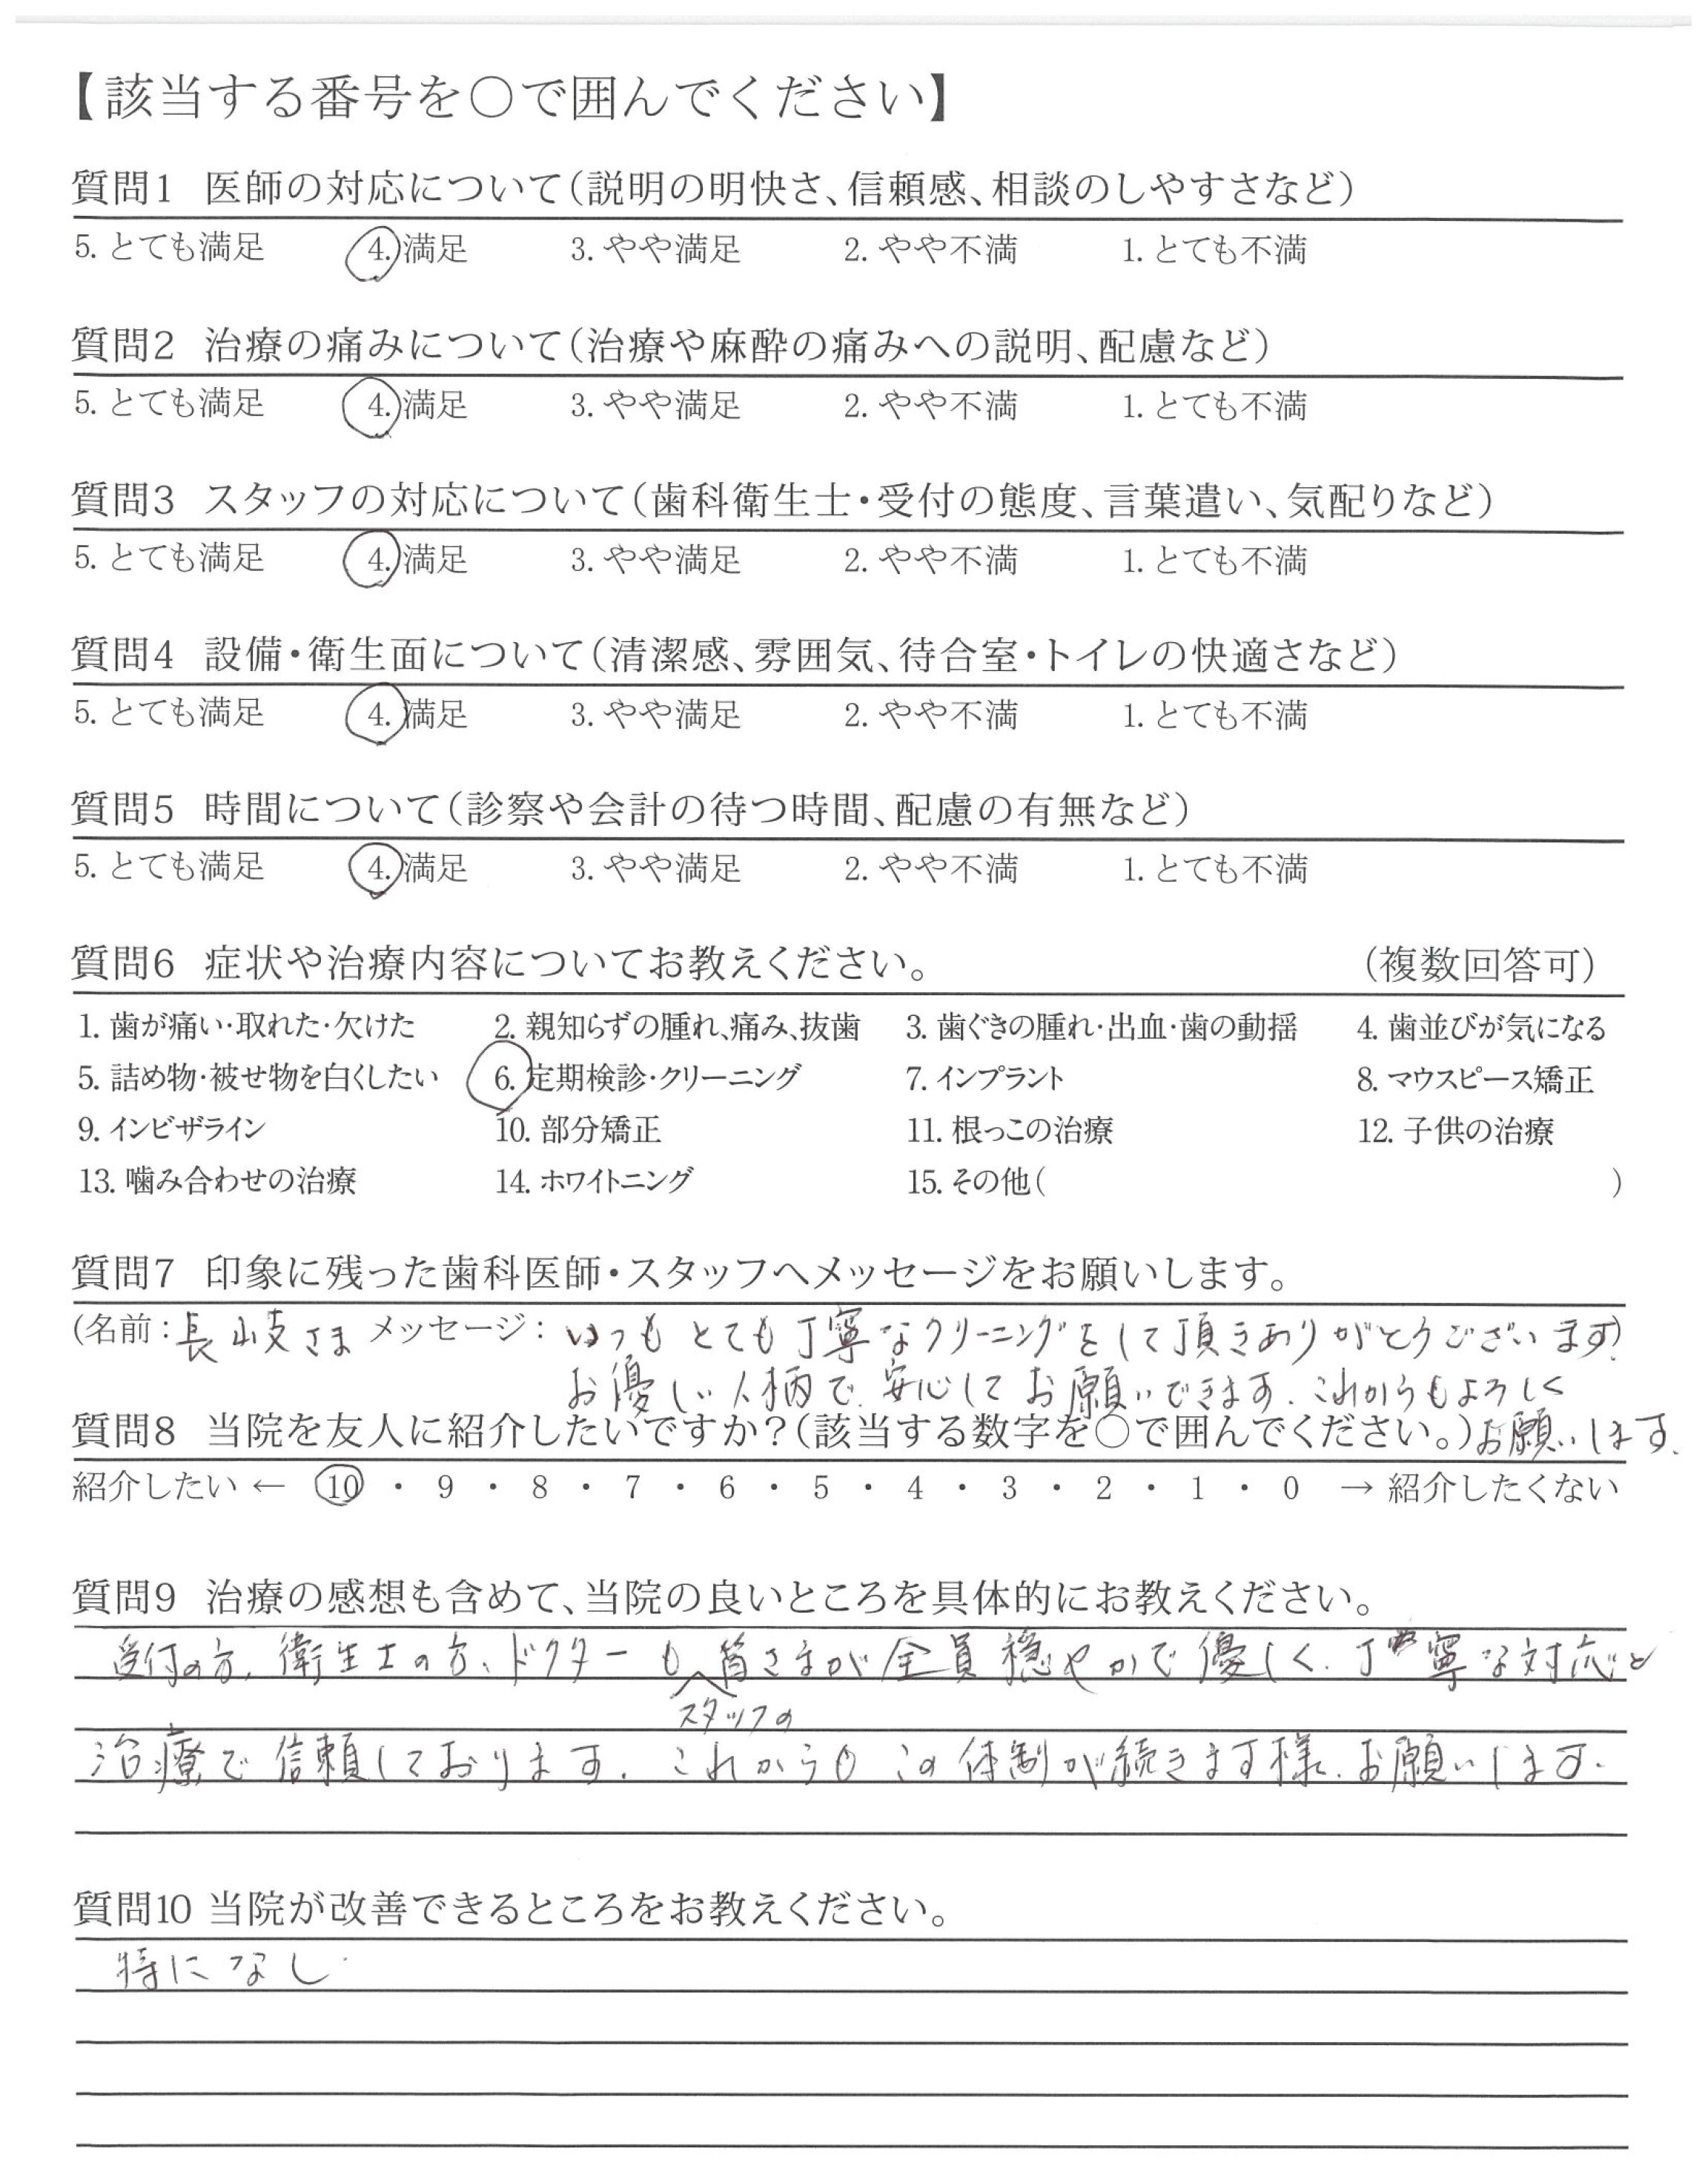 【該当する番号を○で囲んでください】
質問1 医師の対応について(説明の明快さ、信頼感、相談のしやすさなど)
5. とても満足 4. 満足 3. やや満足 2. やや不満 1. とても不満
質問2 治療の痛みについて(治療や麻酔の痛みへの説明、配慮など)
5. とても満足 4. 満足 3. やや満足 2. やや不満 1. とても不満
質問3 スタッフの対応について(歯科衛生士・受付の態度、言葉遣い、気配りなど)
5. とても満足 4. 満足 3. やや満足 2. やや不満 1. とても不満
質問4 設備・衛生面について(清潔感、雰囲気、待合室・トイレの快適さなど)
5. とても満足 4. 満足 3. やや満足 2. やや不満 1. とても不満
質問5 時間について(診察や会計の待つ時間、配慮の有無など)
5. とても満足 4. 満足 3. やや満足 2. やや不満 1. とても不満
質問6 症状や治療内容についてお教えください。 (複数回答可)
1. 歯が痛い・取れた・欠けた 2. 親知らずの腫れ、痛み、抜歯 3. 歯ぐきの腫れ・出血・歯の動揺 4. 歯並びが気になる
5. 詰め物・被せ物を白くしたい 6. 定期検診・クリーニング 7. インプラント 8. マウスピース矯正
9. インビザライン 10. 部分矯正 11. 根っこの治療 12. 子供の治療
13. 噛み合わせの治療 14. ホワイトニング 15. その他( )
質問7 印象に残った歯科医師・スタッフへメッセージをお願いします。
(名前:長岐さま メッセージ: いつもとても丁寧なクリーニングをして頂きありがとうございます)
お優しい人柄で、安心してお願いできます。これからもよろしく
質問8 当院を友人に紹介したいですか?(該当する数字を○で囲んでください。)お願いします。
紹介したい ← 10 ・ 9 ・ 8 ・ 7 ・ 6 ・ 5 ・ 4 ・ 3 ・ 2 ・ 1 ・ 0 → 紹介したくない
質問9 治療の感想も含めて、当院の良いところを具体的にお教えください。
受付の方、衛生士の方、ドクターも皆さまが全員穏やかで優しく、丁寧な対応と
スタッフの
治療で信頼しております。これからもこの体制が続きます様、お願いします。
質問10 当院が改善できるところをお教えください。
特になし